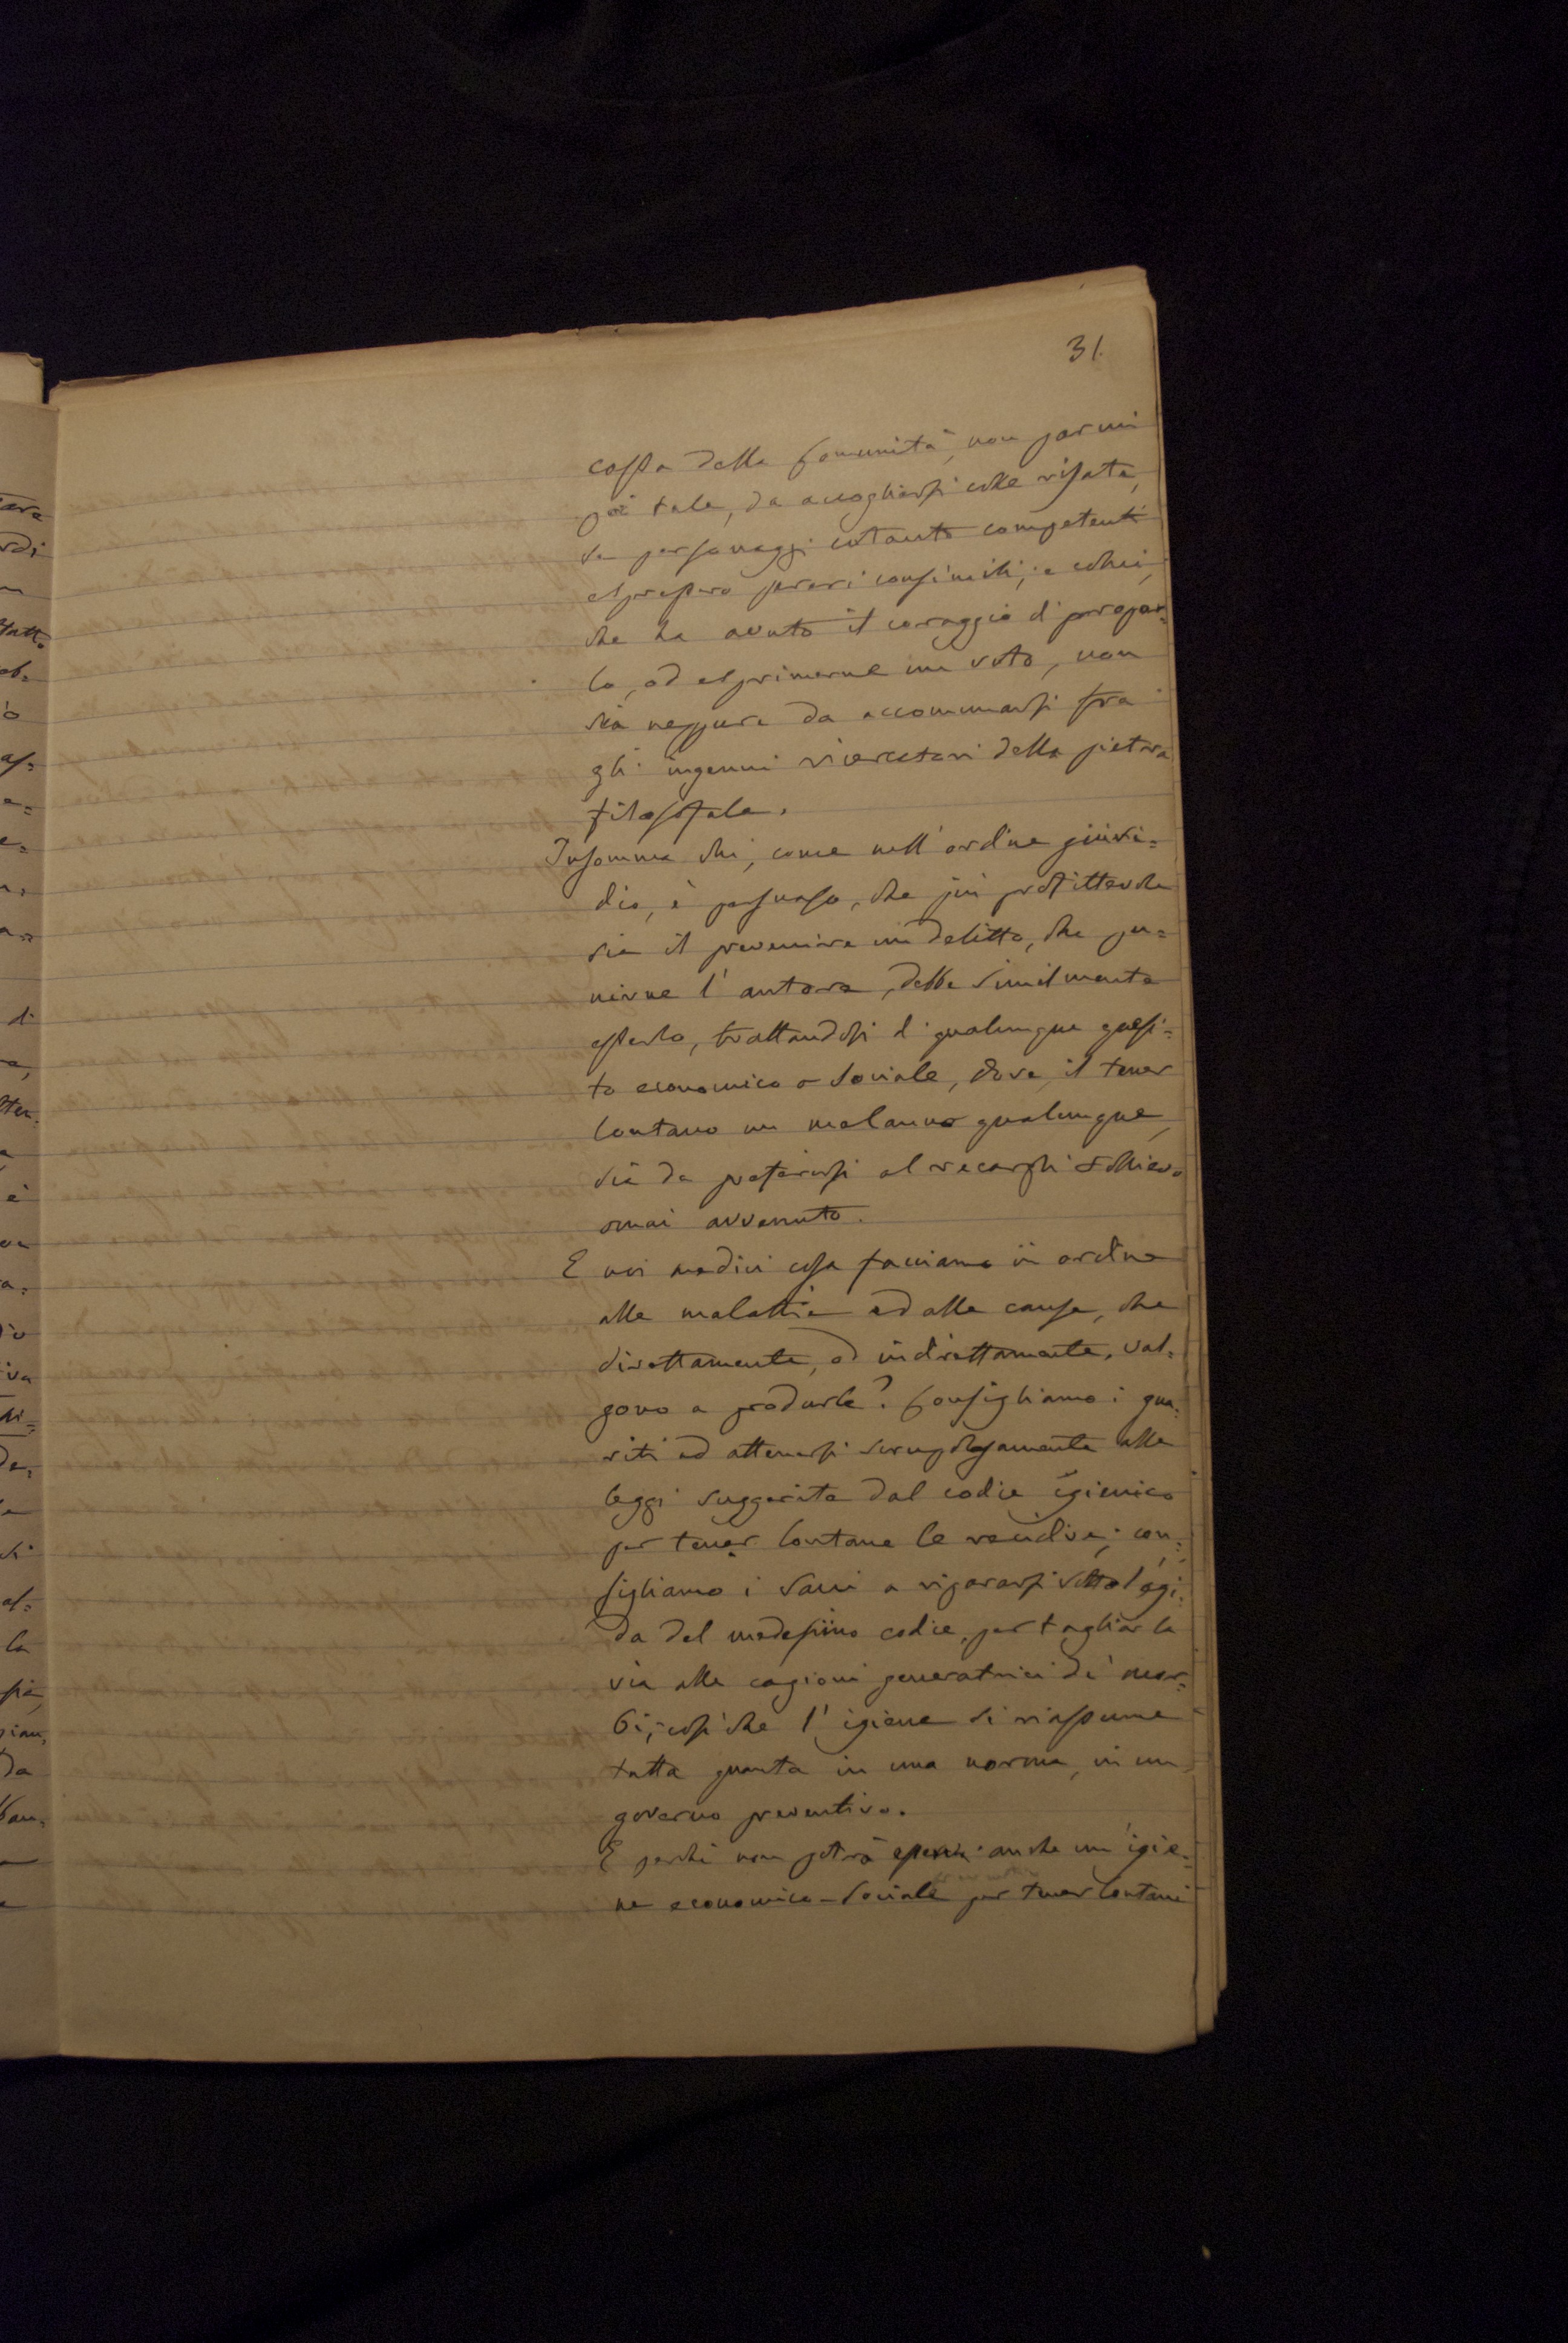 31.
cassa della Comunità, non parmi
poi tale, da accogliersi colle risate,
se personaggi cotanto competenti
espressero pareri consimili; e colui,
che ha avuto il coraggio di propor=
lo, od esprimerne un voto, non
sia neppure da accomunarsi fra
gli ingenui ricercatori della pietra
filosofale.
Insomma chi, come nell'ordine giuri=
dico, è persuaso, che più profittevole
sia il prevenire un delitto, che pu=
nirne l'autore, debbe similmente
esserlo, trattandosi di qualunque quesi=
to economico o sociale, dove il tener
lontano un malanno qualunque,
sia da preferirsi al recargli sollievo
omai avvenuto.
E noi medici cosa facciamo in ordine
alle malattie ed alle cause, che
direttamente, od indirettamente, val=
gono a produrle? Consigliamo i gua=
riti ad attenersi scrupolosamente alle
leggi suggerite dal codice igienico
per tener lontane le recidive; con=
sigliamo i sani a ripararsi sotto l'égi=
da del medesimo codice, per tagliar la
via alle cagioni generatrici de' mor=
bi; così che l'igiene si riassume
tutta quanta in una norma, in un
governo preventivo.
E perché non potrà esservi anche un'igie=
ne economico-sociale per tener lontani
tara
rdi
ob=
o
as=
e=
di
è
la
da